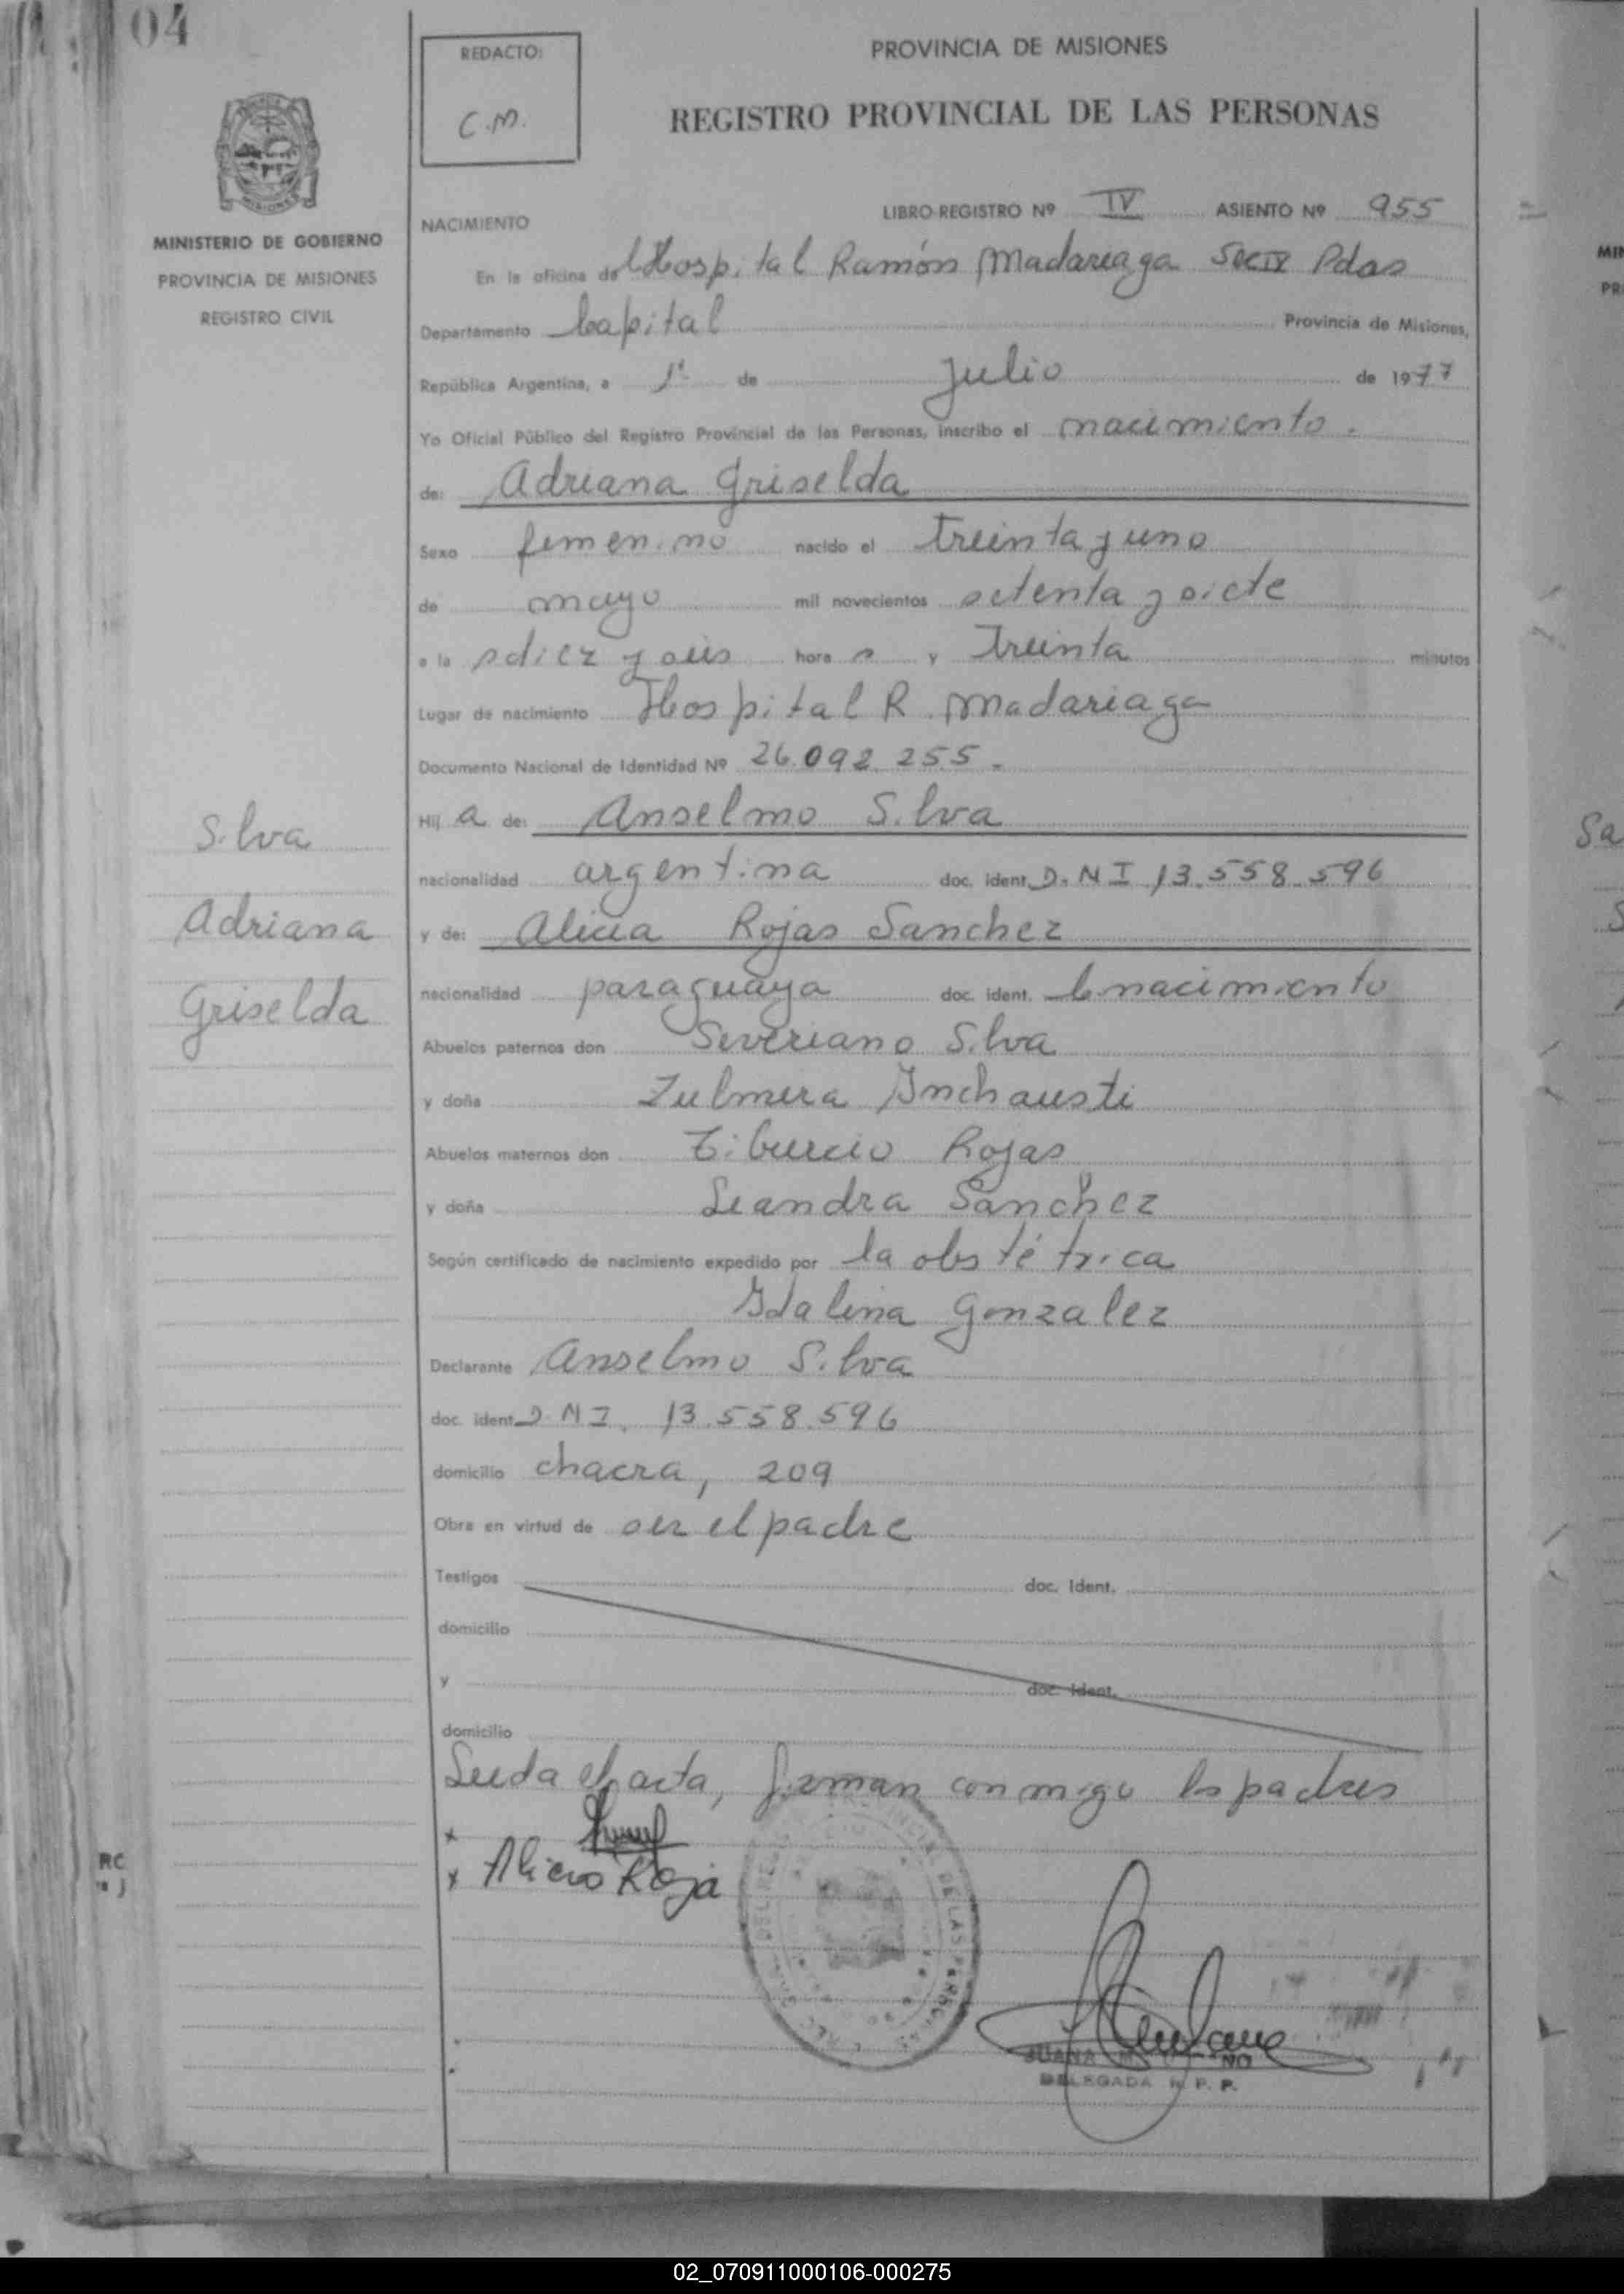 04
REDACTO:
C.M.
PROVINCIA DE MISIONES
REGISTRO PROVINCIAL DE LAS PERSONAS
MINISTERIO DE GOBIERNO
PROVINCIA DE MISIONES
REGISTRO CIVIL
NACIMIENTO
LIBRO REGISTRO Nº IV ASIENTO Nº 955
En la oficina del Hospital Ramón Madariaga Sec IV Pdas
Departamento Capital Provincia de Misiones,
República Argentina, a 1º de Julio de 1977
Yo Oficial Público del Registro Provincial de las Personas, inscribo el nacimiento.
de: Adriana Griselda
Sexo femenino nacido el treinta y uno
de mayo mil novecientos setenta y siete
a la s diez y seis hora s y Treinta minutos
Lugar de nacimiento Hospital R. Madariaga
Documento Nacional de Identidad Nº 26.092.255.
Hij a de: Anselmo Silva
nacionalidad argentina doc. ident. D.N.I. 13.558.596
y de: Alicia Rojas Sanchez
nacionalidad paraguaya doc. ident. C. nacimiento
Abuelos paternos don Severiano Silva
y doña Zulmira Inchausti
Abuelos maternos don Tiburcio Rojas
y doña Leandra Sanchez
Según certificado de nacimiento expedido por la obstétrica
Idalina Gonzalez
Declarante Anselmo Silva
doc. ident. D.N.I. 13.558.596
domicilio chacra, 209
Obra en virtud de ser el padre
Testigos doc. Ident.
domicilio
y doc. Ident.
domicilio
Leida el acta, firman conmigo los padres
x
x Alicia Roja
Silva
Adriana
Griselda
JUANA
DELEGADA R. P. P.
RC
MIN
PR
Sa
02_070911000106-000275